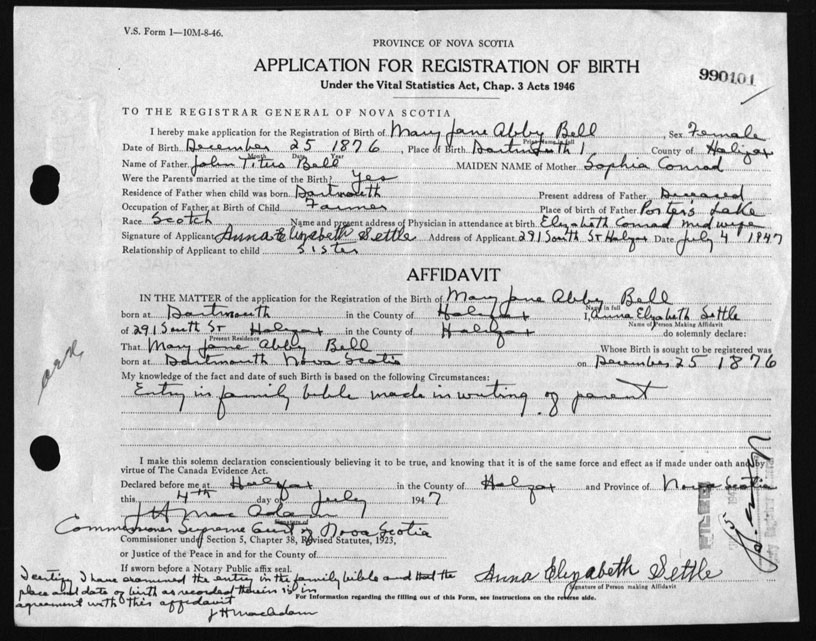 V.S. Form 1—10M-8-46.
PROVINCE OF NOVA SCOTIA
APPLICATION FOR REGISTRATION OF BIRTH
990101
Under the Vital Statistics Act, Chap. 3 Acts 1946
TO THE REGISTRAR GENERAL OF NOVA SCOTIA
I hereby make application for the Registration of Birth of Mary Jane Abby Bell, Sex Female
Print Name in full
Date of Birth December 25 1876, Place of Birth Dartmouth County of Halifax
Month Date Year
Name of Father John Titus Bell MAIDEN NAME of Mother Sophia Conrad
Were the Parents married at the time of the Birth? Yes
Residence of Father when child was born Dartmouth Present address of Father Deceased
Occupation of Father at Birth of Child Farmer Place of birth of Father Porters Lake
Race Scotch Name and present address of Physician in attendance at birth Elizabeth Conrad midwife
Signature of Applicant Anna Elizabeth Settle Address of Applicant 291 South St Halifax Date July 4 1947
Relationship of Applicant to child sister
AFFIDAVIT
IN THE MATTER of the application for the Registration of the Birth of Mary Jane Abby Bell
Name in full
born at Dartmouth in the County of Halifax I, Anna Elizabeth Settle
Name of Person Making Affidavit
of 291 South St Halifax in the County of Halifax do solemnly declare:
Present Residence
That Mary Jane Abby Bell Whose Birth is sought to be registered was
born at Dartmouth Nova Scotia on December 25 1876
My knowledge of the fact and date of such Birth is based on the following Circumstances:
Entry in family bible made in writing of parent
I make this solemn declaration conscientiously believing it to be true, and knowing that it is of the same force and effect as if made under oath and by
virtue of The Canada Evidence Act.
Declared before me at Halifax in the County of Halifax and Province of Nova Scotia
this 4th day of July 1947
J H MacAdam
Signature of
Commissioner Supreme Court of Nova Scotia
Commissioner under Section 5, Chapter 38, Revised Statutes, 1923,
or Justice of the Peace in and for the County of
If sworn before a Notary Public affix seal.
Anna Elizabeth Settle
Signature of Person making Affidavit
I certify I have examined the entry in the family bible and that the
place and date of birth as recorded therein is in
agreement with this affidavit
J H MacAdam
For Information regarding the filling out of this Form, see instructions on the reverse side.